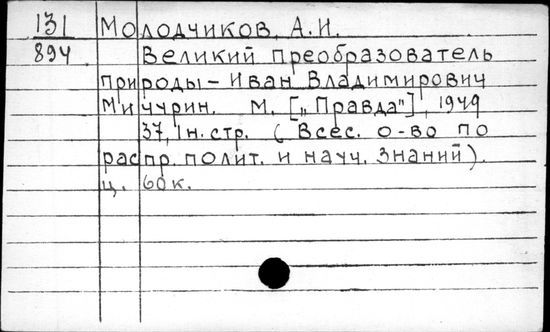 131 Молодчиков, А.И.
894 Великий преобразователь
природы – Иван Владимирович
Мичурин. М. [„Правда"], 1949
37, 1 н. стр. (Всес. о-во по
распр. полит. и науч. знаний).
ц. 60 к.